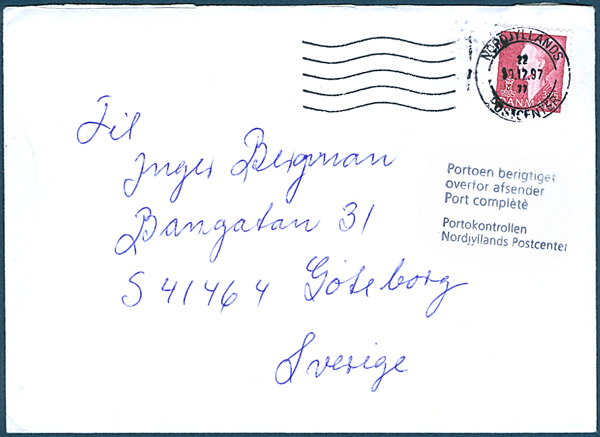 NORDJYLLANDS
22
19.12.97
77
POSTCENTER
DANM
Til
Inger Bergman
Bangatan 31
S 41464 Göteborg
Sverige
Portoen berigtiget
overfor afsender
Port complètè
Portokontrollen
Nordjyllands Postcenter